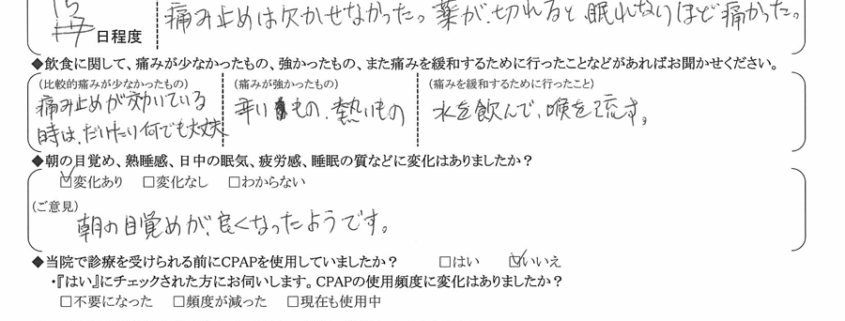 痛み止めは欠かせなかった。薬が、切れると眠れないほど痛かった。
日程度
◆飲食に関して、痛みが少なかったもの、強かったもの、また痛みを緩和するために行ったことなどがあればお聞かせください。
(比較的痛みが少なかったもの) (痛みが強かったもの) (痛みを緩和するために行ったこと)
痛み止めが効いている 辛いもの、熱いもの 水を飲んで、喉を流す。
時は、だいたい何でも大丈夫
◆朝の目覚め、熟睡感、日中の眠気、疲労感、睡眠の質などに変化はありましたか?
☑変化あり □変化なし □わからない
(ご意見)
朝の目覚めが、良くなったようです。
◆当院で診療を受けられる前にCPAPを使用していましたか? □はい ☑いいえ
・『はい』にチェックされた方にお伺いします。CPAPの使用頻度に変化はありましたか?
□不要になった □頻度が減った □現在も使用中